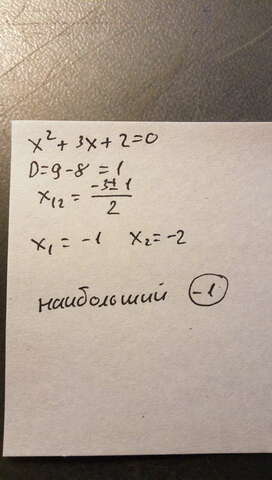 x² + 3x + 2 = 0
D = 9 - 8 = 1
x₁₂ = (-3 ± 1) / 2
x₁ = -1 x₂ = -2
наибольший -1